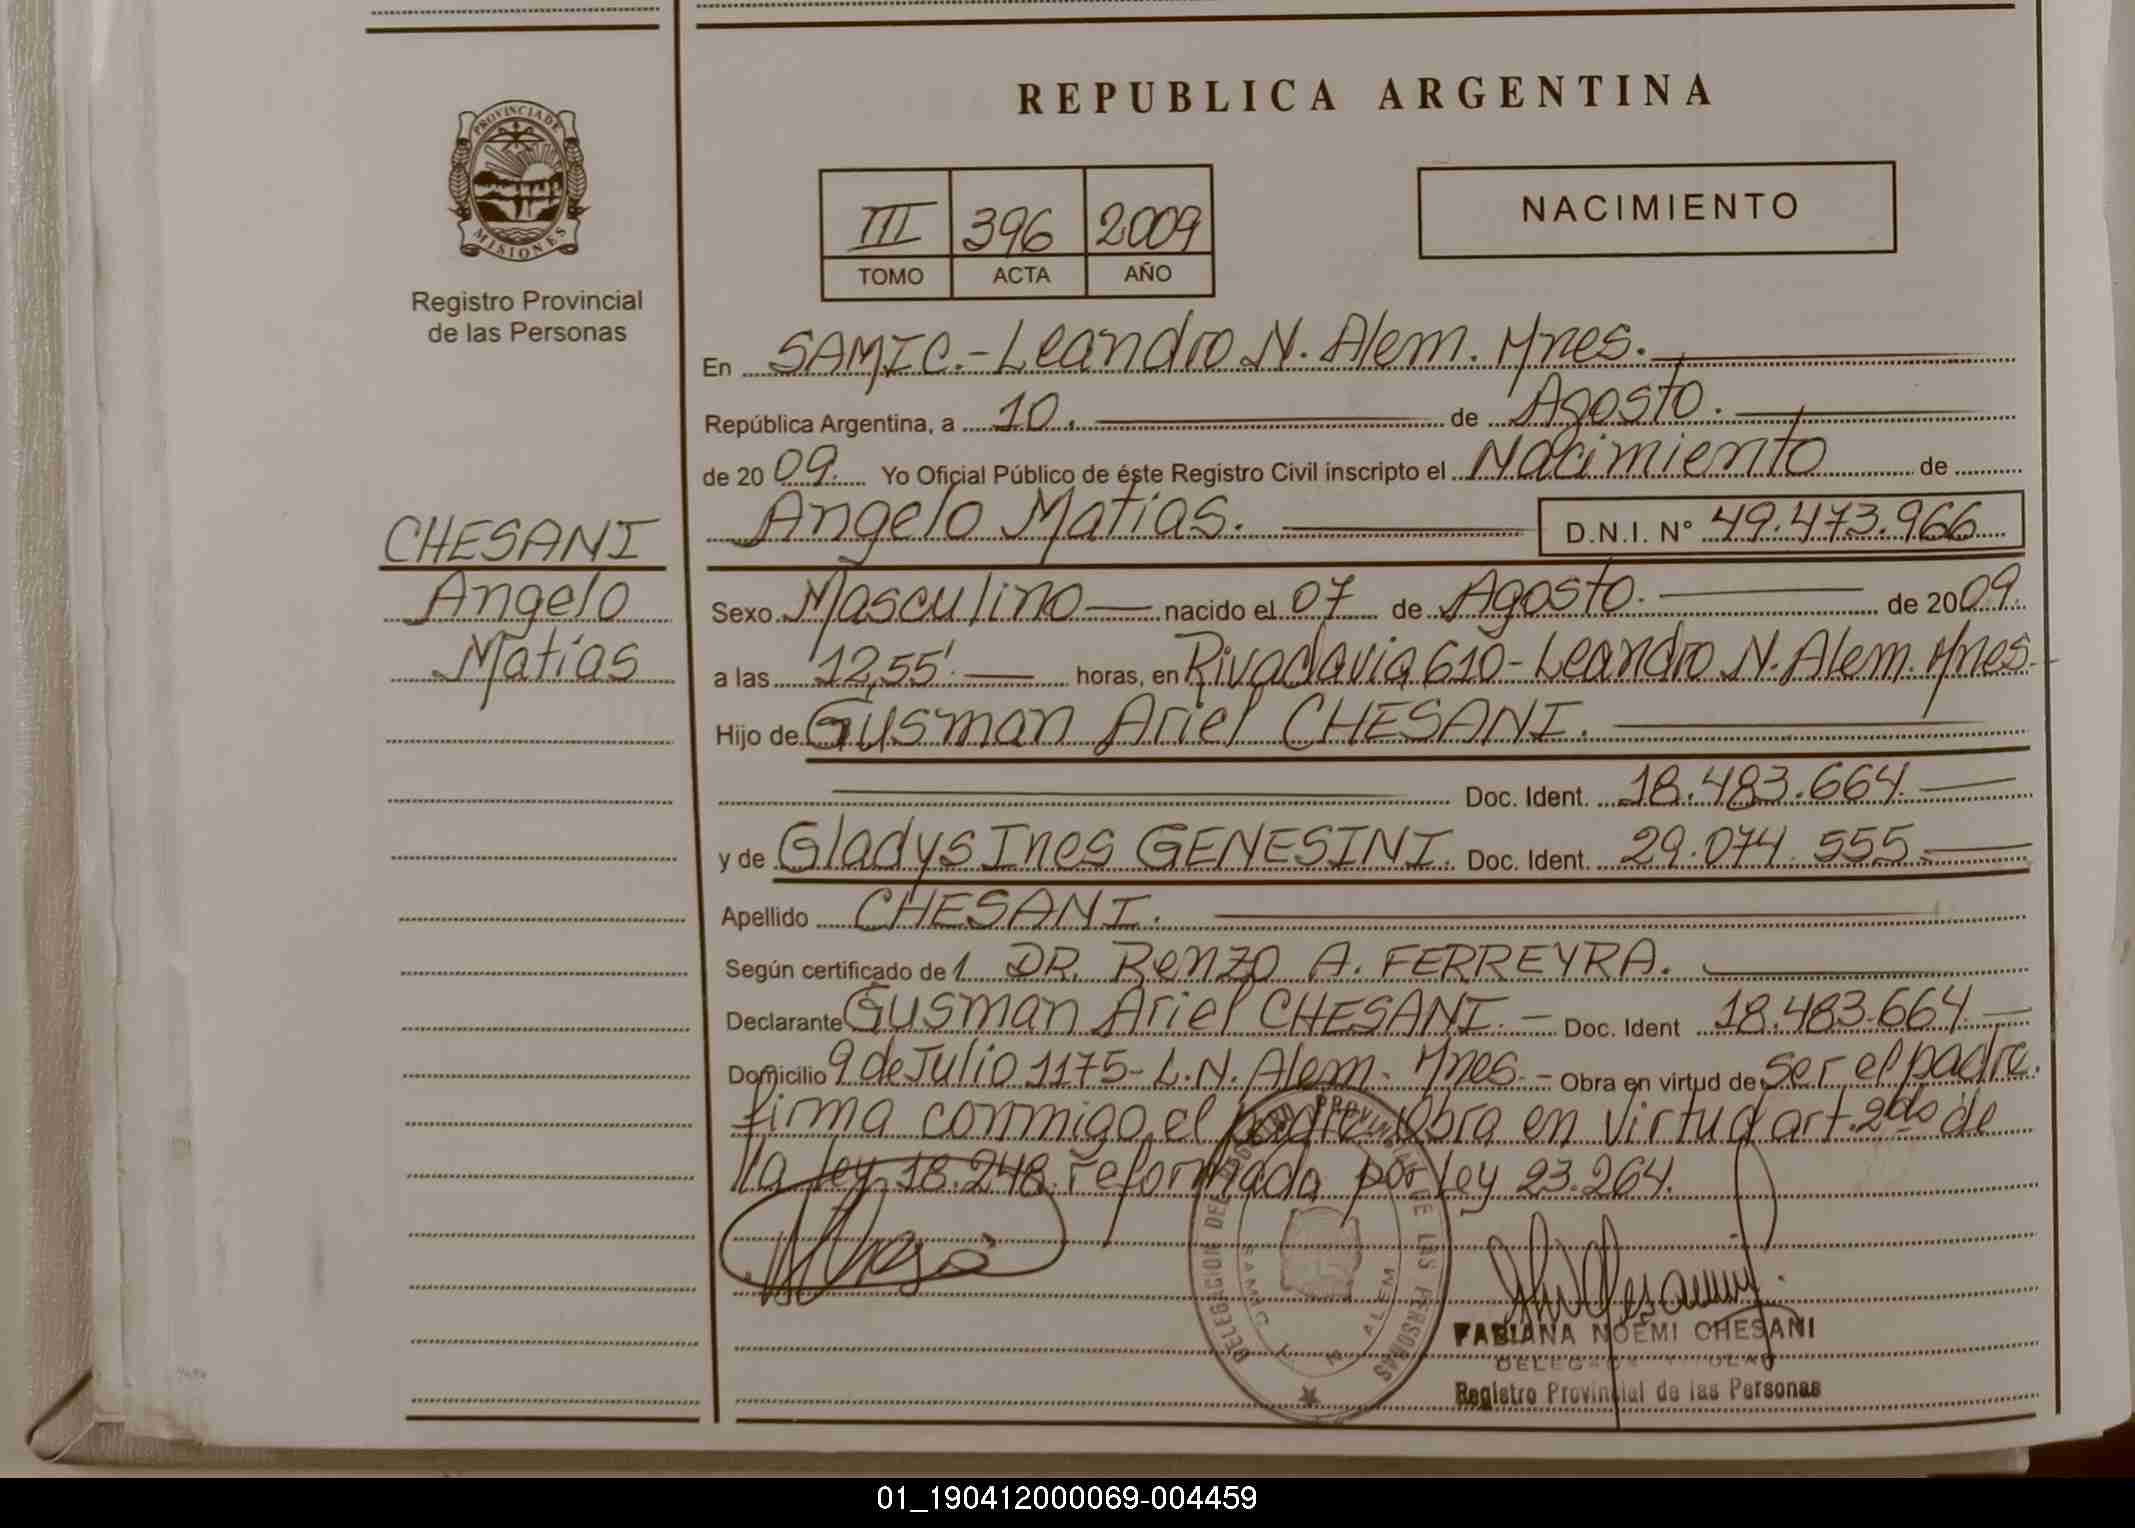 REPUBLICA ARGENTINA
PROVINCIA DE MISIONES
Registro Provincial
de las Personas
III 396 2009
TOMO ACTA AÑO
NACIMIENTO
En SAMIC.-Leandro N. Alem. Mnes.
República Argentina, a 10. de Agosto.
de 20 09. Yo Oficial Público de éste Registro Civil inscripto el Nacimiento de
Angelo Matías. D.N.I. N° 49.473.966
CHESANI
Angelo
Matías
Sexo Masculino nacido el 07 de Agosto. de 2009.
a las 12,55'. horas, en Rivadavia 610-Leandro N. Alem. Mnes.
Hijo de Gusman Ariel CHESANI.
Doc. Ident. 18.483.664.
y de Gladys Ines GENESINI. Doc. Ident. 29.074.555.
Apellido CHESANI.
Según certificado de 1 DR. Renzo A. FERREYRA.
Declarante Gusman Ariel CHESANI. - Doc. Ident 18.483.664.
Domicilio 9 de Julio 1175-L.N. Alem. Mnes. - Obra en virtud de ser el padre.
firma conmigo el padre. Obra en virtud art. 2do de
la ley 18.248. reformada por ley 23.264.
DELEGACION DEL REGISTRO PROVINCIAL DE LAS PERSONAS
SAMIC L N ALEM
FABIANA NOEMI CHESANI
DELEGADA TITULAR
Registro Provincial de las Personas
01_190412000069-004459